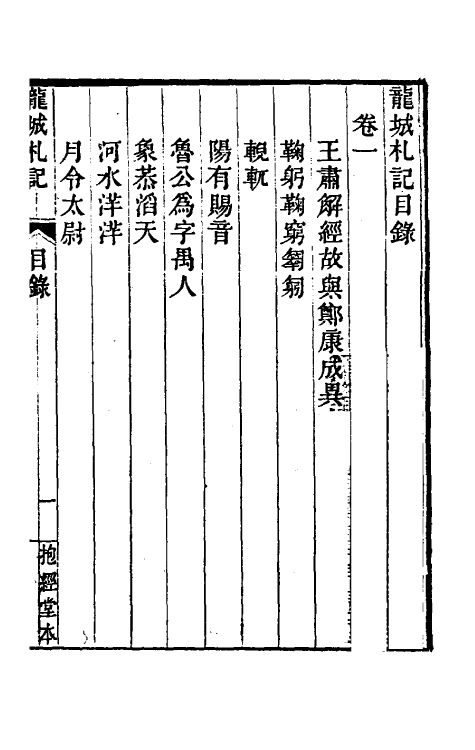 龍城札記目錄
卷一
王肅解經故與鄭康成異
鞠躬鞠窮匑匔
輗軏
陽有賜音
魯公爲字禺人
象恭滔天
河水洋洋
月令太尉
龍城札記
目錄
一
抱經堂本